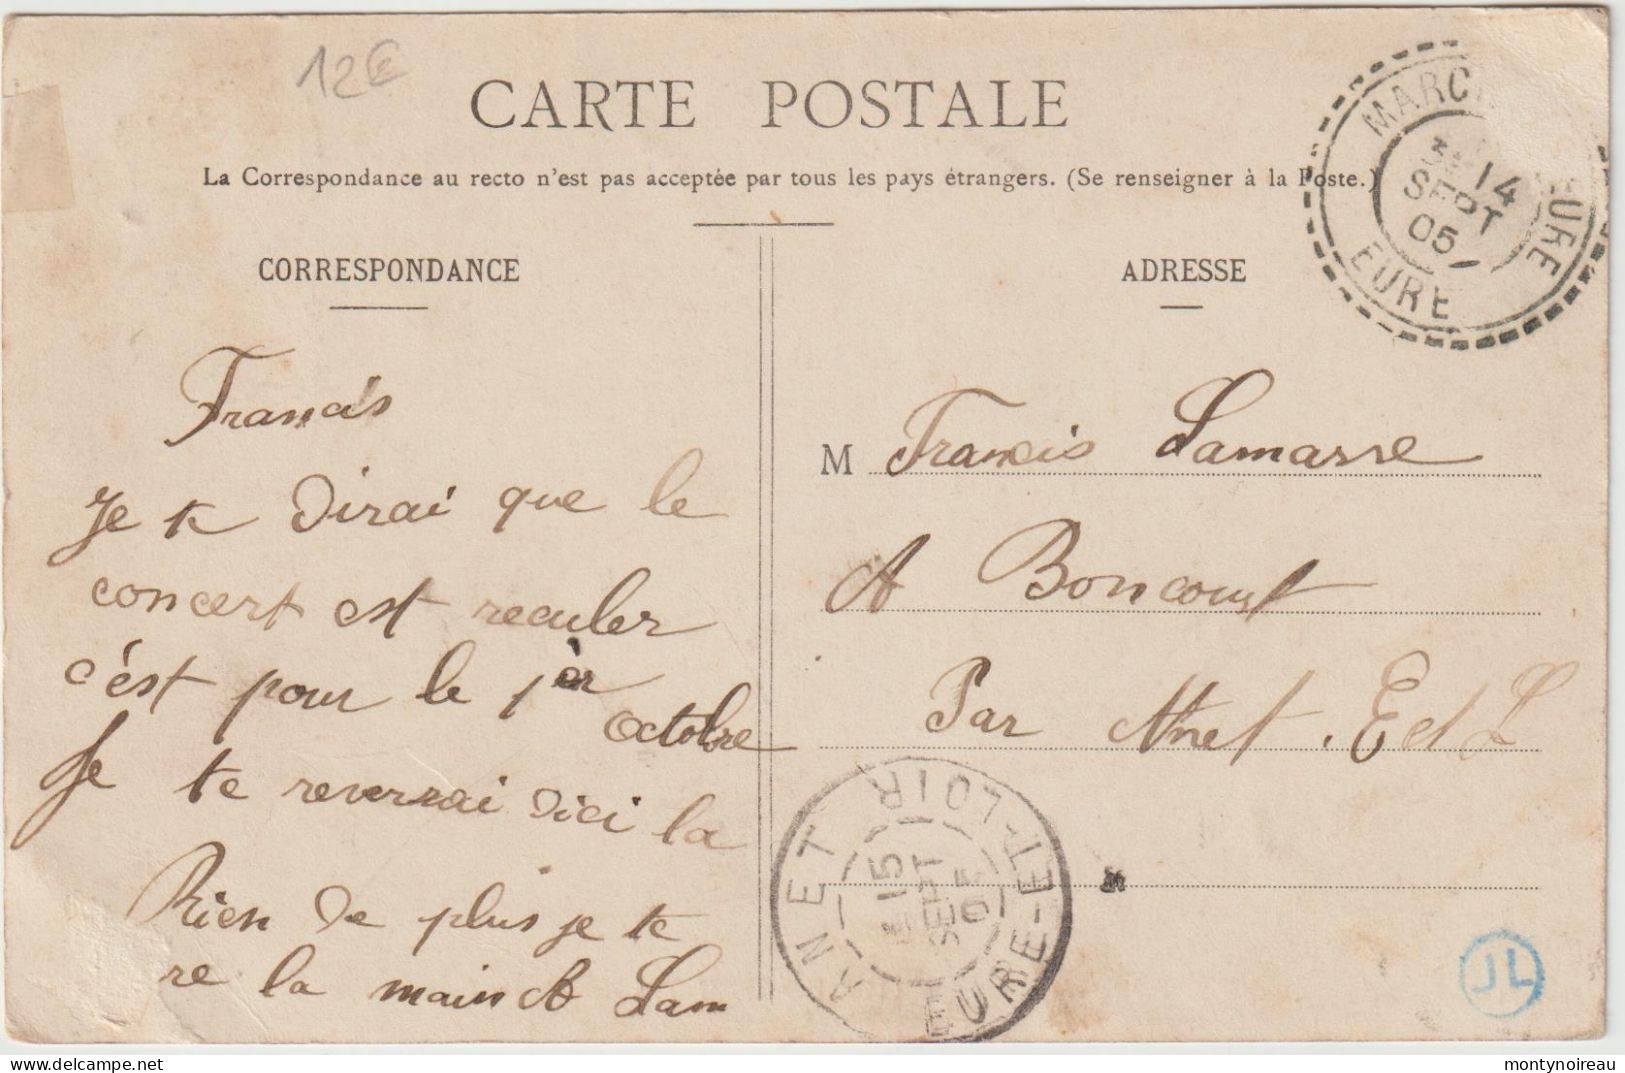 12€
CARTE POSTALE
La Correspondance au recto n'est pas acceptée par tous les pays étrangers. (Se renseigner à la Poste.)
CORRESPONDANCE
Francis
Je te Dirai que le
concert est reculer
c'est pour le 1èr
octobre
Je te reverrai dici la
Rien de plus je te
re la main A Lam
ADRESSE
M Francis Lamarre
A Boncourt
Par Anet. E et L
MARC EURE
14
SEPT
05
EURE
ANET
EURE-ET-LOIR
15
SEPT
05
JL
delcampe.net
montynoireau